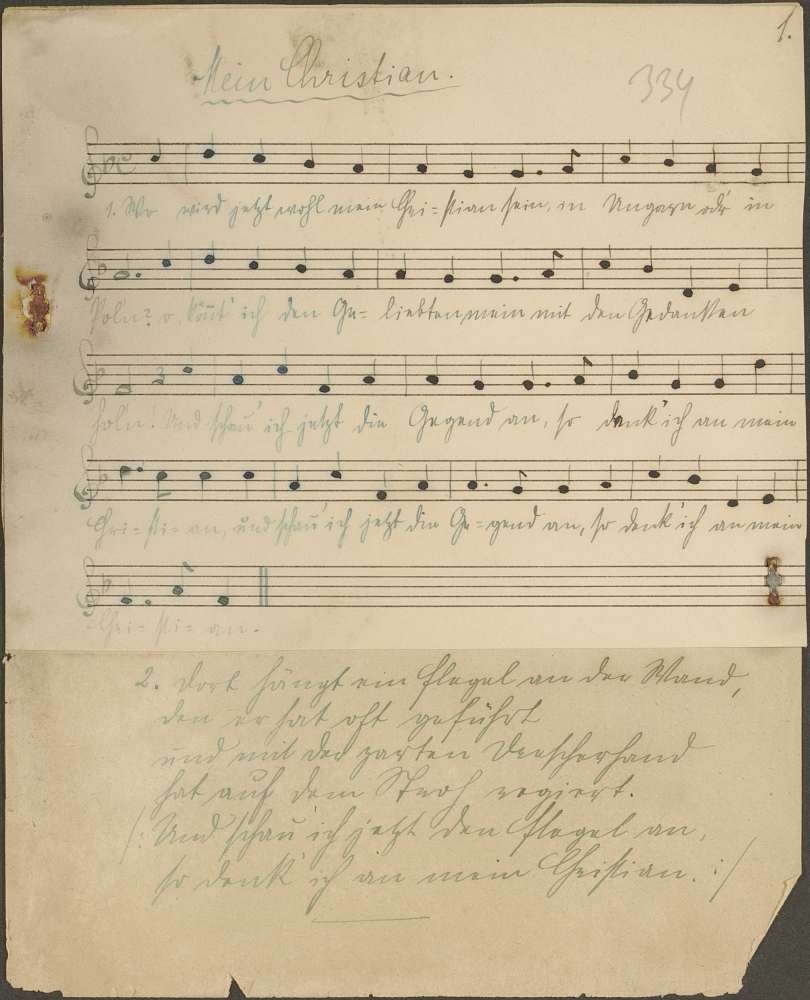 1.
Mein Christian.
334
1. Wo wird jetzt wohl mein Chri=stian sein, in Ungarn od'r in
Pol'n? o, könnt' ich den Ge= liebten mein mit den Gedanken
hol'n! Und schau' ich jetzt die Gegend an, so denk' ich an mein
Chri=sti=an, und schau' ich jetzt die Ge=gend an, so denk' ich an mein
Chri=sti=an.
2. Dort hängt ein Flegel an der Wand,
den er hat oft geführt
und mit der zarten Drescherhand
hat auf dem Stroh regiert.
/: Und schau' ich jetzt den Flegel an,
so denk' ich an mein Christian. :/